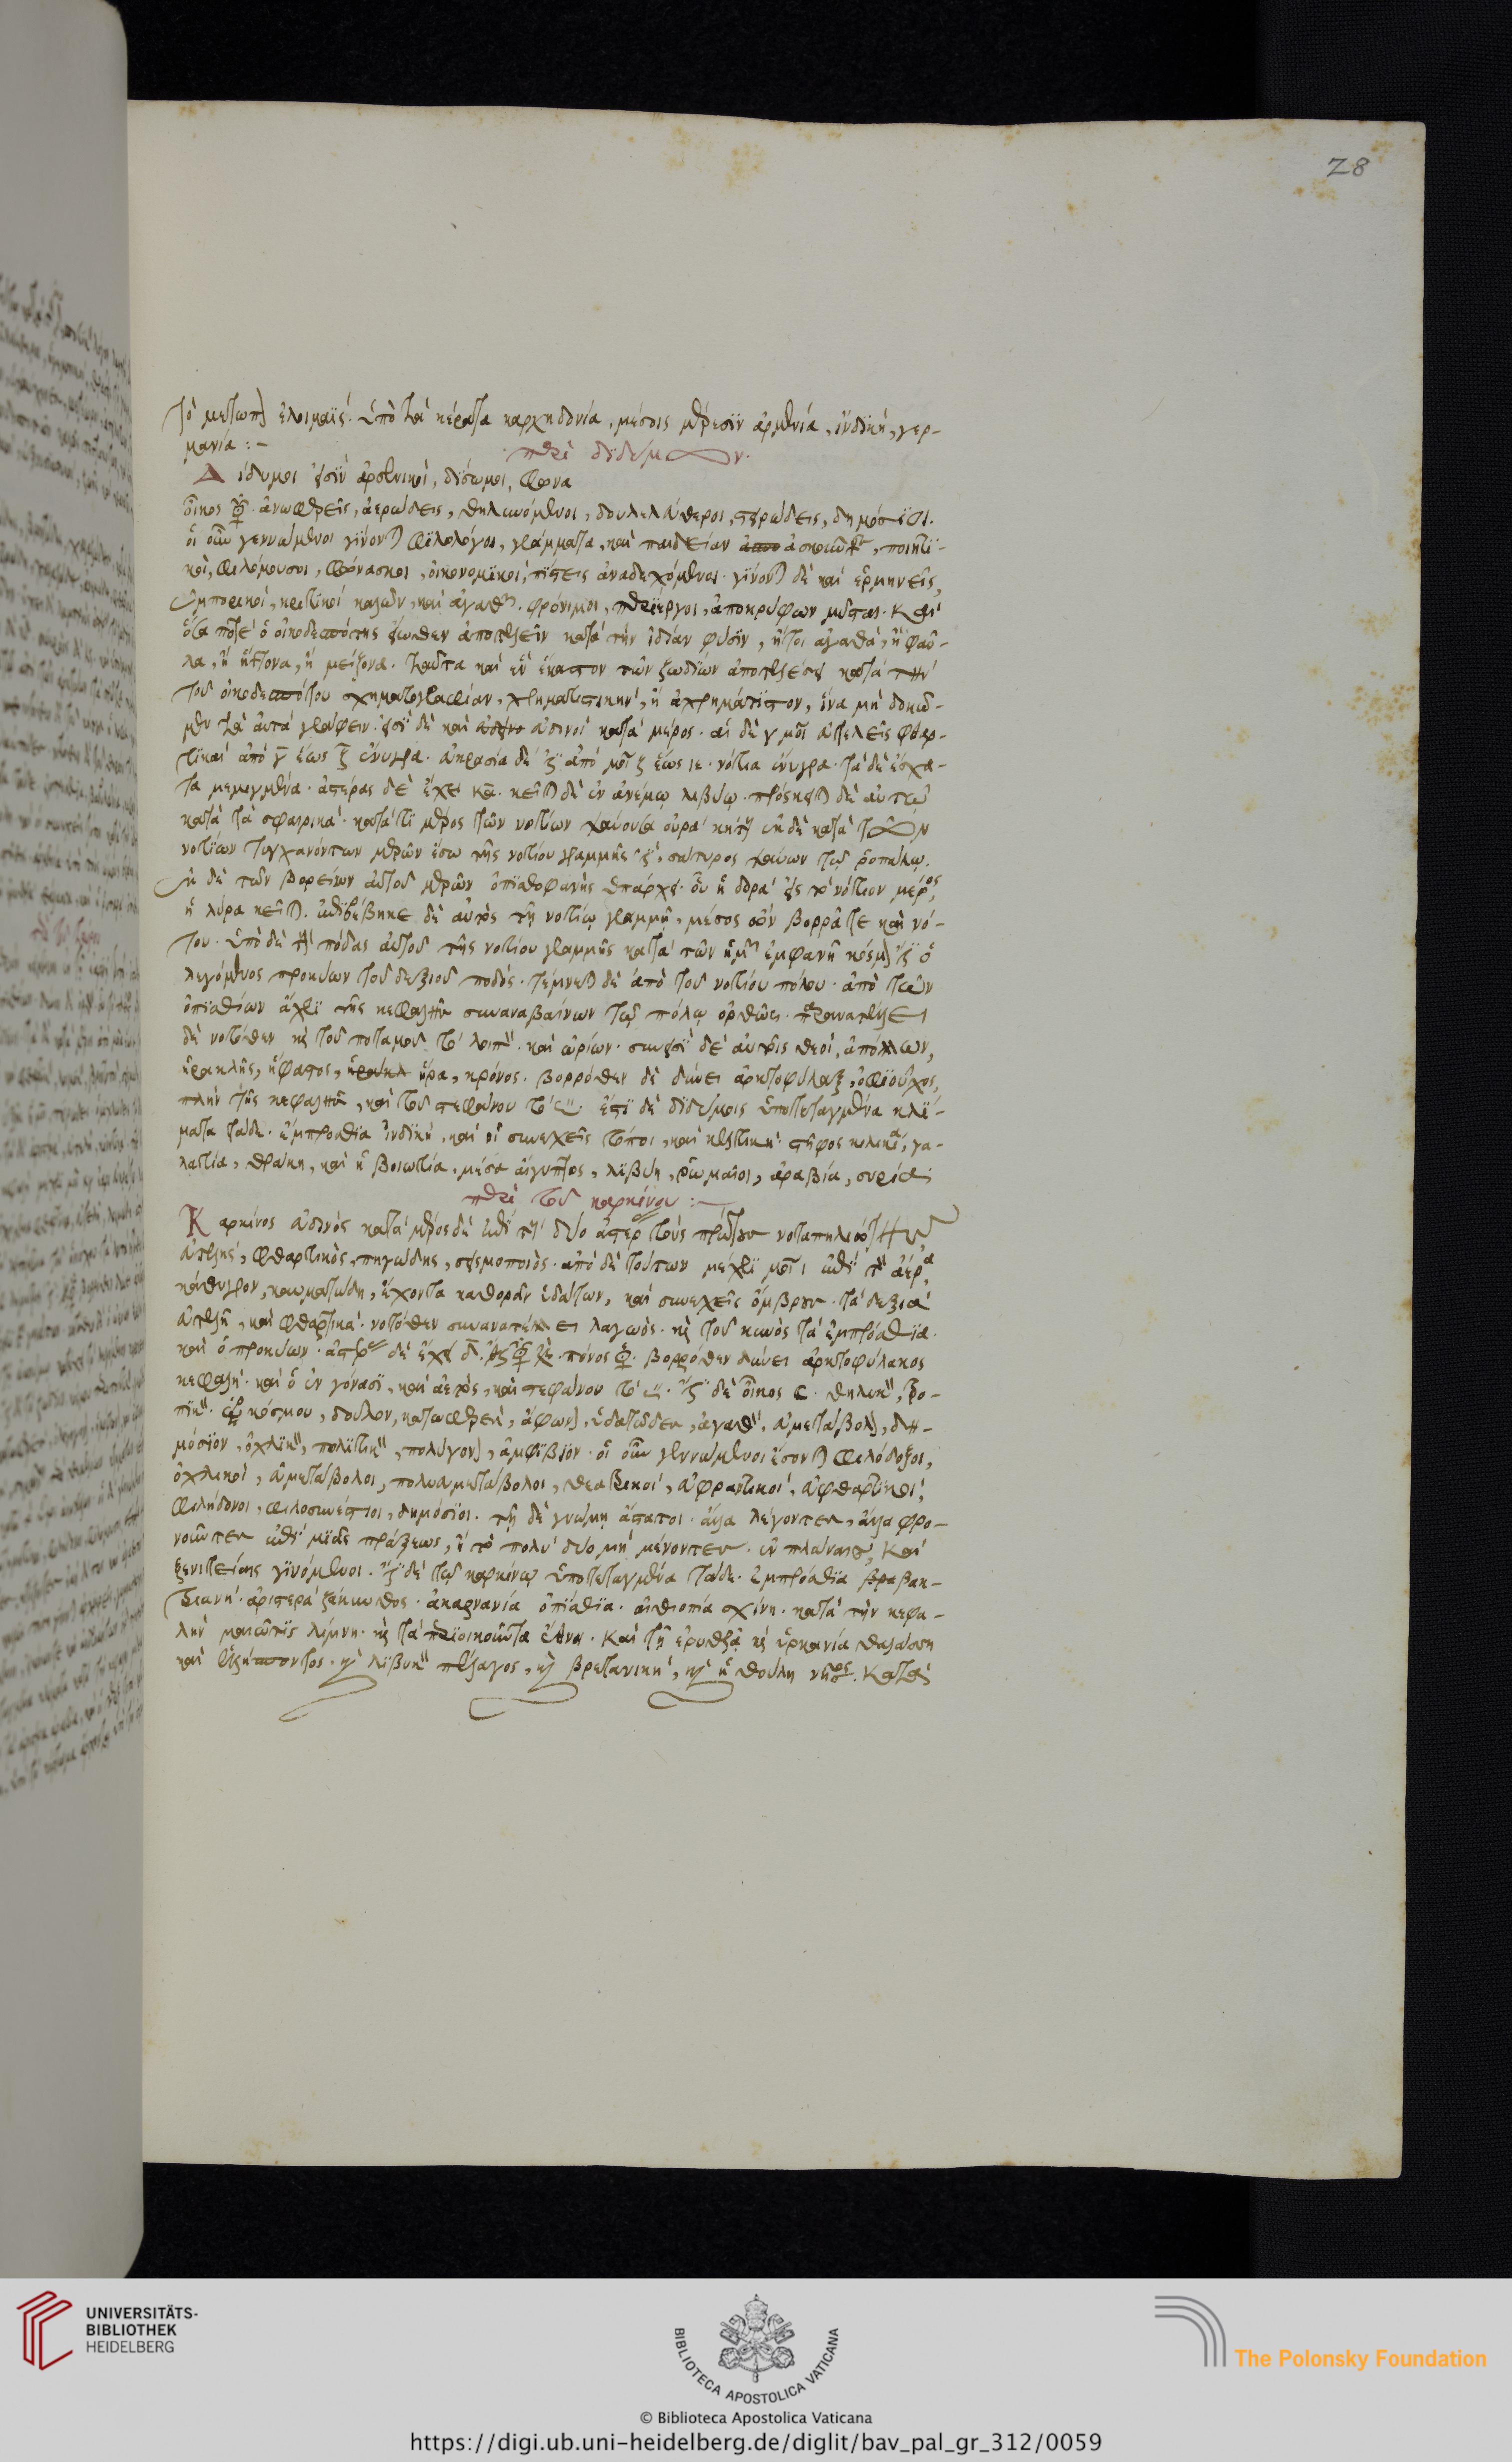 28
τὸ μέτωπον ἐλυμαΐς. ὑπὸ τὰ κέρατα καρχηδονία, μέσοις μέρεσιν ἀρμενία, ἰνδικὴ, γερ-
μανία :-
περὶ διδύμων.
Δίδυμοι εἰσὶν ἀρσενικοὶ, δίσωμοι,
οἶκος ☿. ἀνωφερεῖς, ἀερώδεις, θηλυνόμενοι, δουλελεύθεροι, στειρώδεις, δημόσιοι.
οἱ οὖν γεννώμενοι γίνονται φιλολόγοι, γράμματα, καὶ παιδείαν ἀσκοῦντες, ποιητι-
κοὶ, φιλόμουσοι, φώνασκοι, οἰκονομικοὶ, πίστεις ἀναδεχόμενοι. γίνονται δὲ καὶ ἑρμηνεῖς,
ἐμπορικοὶ, κριτικοὶ κακῶν, καὶ ἀγαθῶν. φρόνιμοι, περίεργοι, ἀποκρύφων μύσται. καὶ
ὅσα ποτὲ ὁ οἰκοδεσπότης εἴωθεν ἀποτελεῖν κατὰ τὴν ἰδίαν φύσιν, ἤτοι ἀγαθὰ, ἢ φαῦ-
λα, ἢ ἥττονα, ἢ μείζονα. ταῦτα καὶ ἓν ἕκαστον τῶν ζωδίων ἀποτελέσει κατὰ τὴν
τοῦ οἰκοδεσπότου σχηματογραφίαν, χρηματιστικὴν, ἢ ἀχρημάτιστον, ἵνα μὴ δοκῶ-
μεν τὰ αὐτὰ γράφειν. εἰσὶ δὲ καὶ ἀσινοὶ κατὰ μέρος. αἱ δὲ γ μοῖραι ἀτελεῖς φθαρ-
τικαὶ ἀπὸ γ ἕως ζ ἔνυγρα. ἀκρασία δὲ ἐστὶ ἀπὸ μοιρῶν ζ ἕως ιε. νότια ἔνυγρα. τὰ δὲ ἔσχα-
τα μεμιγμένα. ἀστέρας δὲ ἔχει κα. κεῖται δὲ ἐν ἀνέμῳ λιβύῳ. πρόσκειται δὲ αὐτῷ
κατὰ τὰ σφαιρικὰ. κατὰ τι μέρος τῶν νοτίων χαίουσα οὐρὰ κήτους ἡ δὲ κατὰ τῶν
νοτίων τυγχανόντων μερῶν ἔσω τῆς νοτίου γραμμῆς ἐστὶ, σάτυρος τῷ ῥοπάλῳ.
ἡ δὲ τῶν βορείων αὐτοῦ μερῶν ὀπισθοφανὴς ὑπάρχει. οὗ ἡ δορὰ εἰς τὸ νότιον μέρος,
ἡ λύρα κεῖται. ἐπιβέβηκε δὲ αὐτὸς τῇ νοτίῳ γραμμῇ, μέσος ὢν βορρᾶ τε καὶ νό-
του. ὑπὸ δὲ τοὺς πόδας αὐτοῦ τῆς νοτίου γραμμῆς κατὰ τῶν ἐμφανῆ κόσμον ἐστὶ ὁ
λεγόμενος προκύων τοῦ δεξιοῦ ποδὸς. τέμνεται δὲ ἀπὸ τοῦ νοτίου πόλου. ἀπὸ τῶν
ὀπισθίων ἄχρι τῆς κεφαλῆς συναναβαίνων τῷ πόλῳ ὀρθῶς. παρανατέλλει
δὲ νοτόθεν καὶ τοῦ ποταμοῦ τὸ λοιπὸν. καὶ ὠρίων. συνεισὶ δὲ αὐτοῖς θεοὶ, ἀπόλλων,
ἡρακλῆς, ἥφαστος, ἥρα, κρόνος. βορρόθεν δὲ δύνει ἀρκτοφύλαξ, ὀφιοῦχος,
πλὴν τῆς κεφαλῆς, καὶ τοῦ στεφάνου τὸ ἥμισυ. ἔστι δὲ διδύμοις ὑποτεταγμένα κλί-
ματα τάδε. ἐμπρόσθια ἰνδικὴ, καὶ οἱ συνεχεῖς τόποι, καὶ κελτικὴ. στῆθος κιλικία, γα-
λατία, θράκη, καὶ ἡ βοιωτία. μέσα αἴγυπτος, λιβύη, ῥωμαῖοι, ἀραβία, συρία :
περὶ τοῦ καρκίνου :-
Καρκίνος ἀσινὸς κατὰ μέρος δὲ ἐπὶ τοὺς δύο ἀστέρας τοὺς πρώτους
ἀτελὴς, φθαρτικὸς, πηγώδης, σεισμοποιὸς. ἀπὸ δὲ τούτων μέχρι μοιρῶν ι ἐπὶ τὸν ἀέρα
κάθυγρον, καυματώδη, ἔχοντα καθορᾶν ὑδάτων, καὶ συνεχεῖς ὄμβρους. τὰ δεξιὰ
ἀτελῆ, καὶ φθαρτικὰ. νοτόθεν συνανατέλλει λαγωὸς. καὶ τοῦ κυνὸς τὰ ἐμπρόσθια.
καὶ ὁ προκύων. ἀστέρας δὲ ἔχει δ. βορρόθεν δύνει ἀρκτοφύλακος
κεφαλὴ. καὶ ὁ ἐν γόνασι, καὶ ἀετὸς, καὶ στεφάνου τὸ ἥμισυ. ἐστὶ δὲ οἶκος ☾. θηλυκὸν, τρο-
πικὸν. κόσμου, δοῦλον, κατωφερὲς, ἄφωνον, ὑδατῶδες, ἀγαθὸν, ἀμετάβολον, δη-
μόσιον, ὀχλικὸν, πολιτικὸν, πολύγονον, ἀμφίβιον. οἱ οὖν γεννώμενοι ἔσονται φιλόδοξοι,
ὀχλικοὶ, ἀμετάβολοι, πολυαμετάβολοι, θεατρικοὶ, ἀφραντικοὶ, ἀφθαρτικοὶ,
φιλήδονοι, φιλοσυνέστιοι, δημόσιοι. τῇ δὲ γνώμῃ ἄστατοι. ἄλλα λέγοντες, ἄλλα φρο-
νοῦντες ἐπὶ μιᾶς πράξεως, ἢ τὸ πολὺ δύο μὴ μένοντες. ἐν πλάναις, καὶ
ξενιτείαις γινόμενοι. ἐστὶ δὲ τῷ καρκίνῳ ὑποτεταγμένα τάδε. ἐμπρόσθια βραβακ-
τριανὴ. ἀριστερὰ ζάκινθος. ἀκαρνανία ὀπίσθια. αἰθιοπία σχίνη. κατὰ τὴν κεφα-
λὴν μαιῶτις λίμνη. καὶ τὰ περιοικοῦντα ἔθνη. καὶ τῇ ἐρυθρᾷ καὶ ὑρκανία θάλασση
καὶ ἑλλήσποντος. καὶ λιβυκὸν πέλαγος, καὶ βρετανικὴ, καὶ ἡ θούλη νῆσος. κατὰ
UNIVERSITÄTS-
BIBLIOTHEK
HEIDELBERG
BIBLIOTECA APOSTOLICA VATICANA
The Polonsky Foundation
© Biblioteca Apostolica Vaticana
https://digi.ub.uni-heidelberg.de/diglit/bav_pal_gr_312/0059